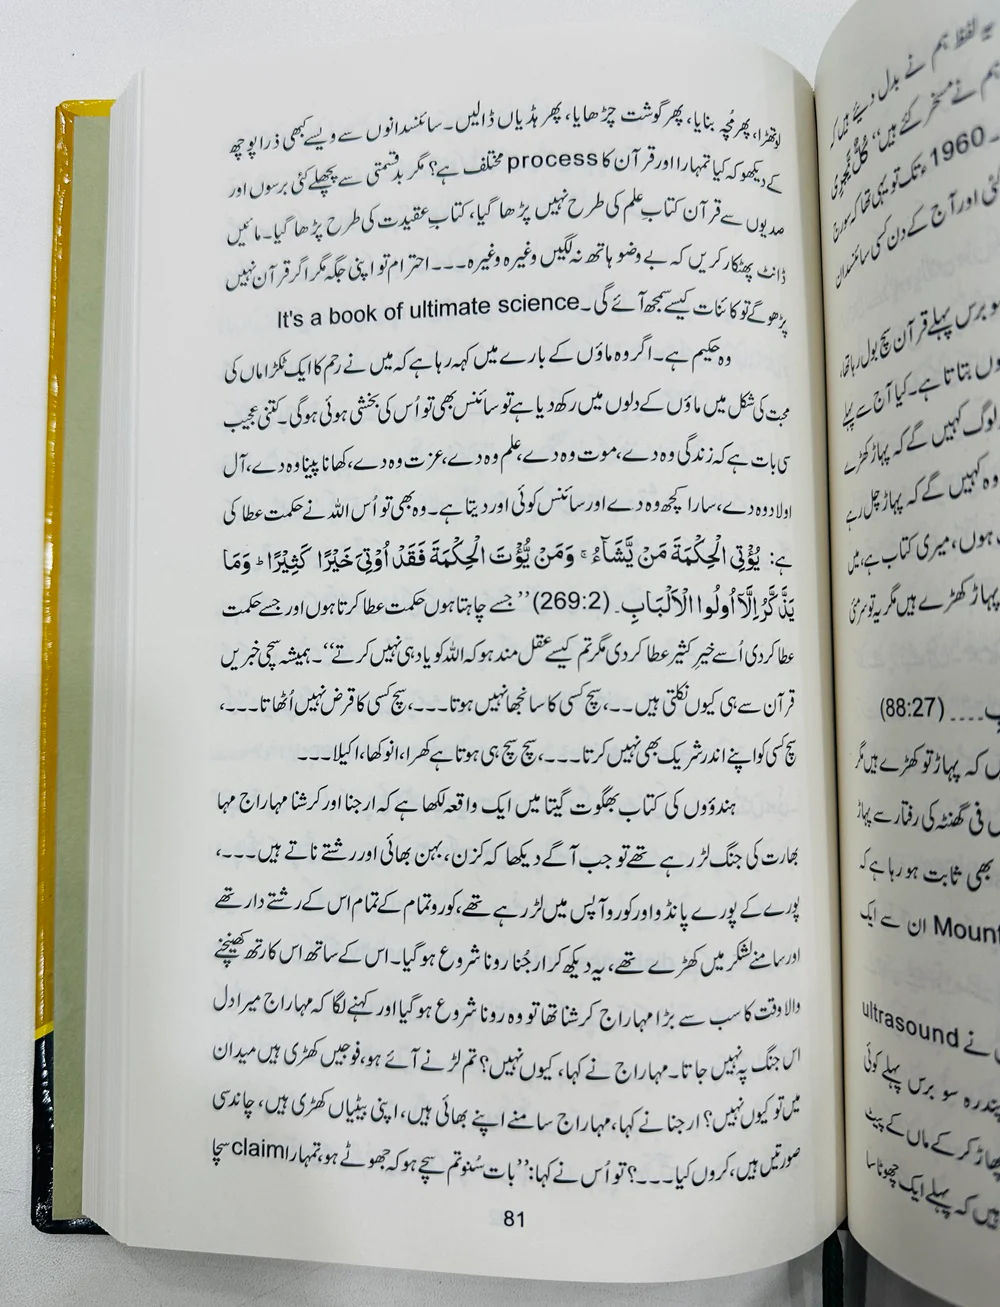 لوتھڑا، پھر مُچہ بنایا، پھر گوشت چڑھایا، پھر ہڈیاں ڈالیں۔ سائنسدانوں سے ویسے کبھی ذرا پوچھ
کے دیکھو کہ کیا تمہارا اور قرآن کا process مختلف ہے؟ مگر بدقسمتی سے پچھلے کئی برسوں اور
صدیوں سے قرآن کتابِ علم کی طرح نہیں پڑھا گیا، کتابِ عقیدت کی طرح پڑھا گیا۔ مائیں
ڈانٹ پھٹکار کریں کہ بے وضو ہاتھ نہ لگیں وغیرہ وغیرہ۔۔۔ احترام تو اپنی جگہ مگر اگر قرآن نہیں
پڑھو گے تو کائنات کیسے سمجھ آئے گی۔ It's a book of ultimate science
وہ حکیم ہے۔ اگر وہ ماؤں کے بارے میں کہہ رہا ہے کہ میں نے رحم کا ایک ٹکڑا ماں کی
محبت کی شکل میں ماؤں کے دلوں میں رکھ دیا ہے تو سائنس بھی تو اُس کی بخشی ہوئی ہوگی۔ کتنی عجیب
سی بات ہے کہ زندگی وہ دے، موت وہ دے، علم وہ دے، عزت وہ دے، کھانا پینا وہ دے، آل
اولاد وہ دے، سارا کچھ وہ دے اور سائنس کوئی اور دیتا ہے۔ وہ بھی تو اُس اللہ نے حکمت عطا کی
ہے: يُؤْتِي الْحِكْمَةَ مَنْ يَّشَآءُ ۚ وَمَنْ يُّؤْتَ الْحِكْمَةَ فَقَدْ اُوْتِيَ خَيْرًا كَثِيْرًا ؕ وَمَا
يَذَّكَّرُ اِلَّا اُولُوا الْاَلْبَابِ۔ (269:2) ’’جسے چاہتا ہوں حکمت عطا کرتا ہوں اور جسے حکمت
عطا کردی اُسے خیرِ کثیر عطا کردی مگر تم کیسے عقل مند ہو کہ اللہ کو یاد ہی نہیں کرتے‘‘۔ ہمیشہ سچی خبریں
قرآن سے ہی کیوں نکلتی ہیں۔۔۔، سچ کسی کا سانجھا نہیں ہوتا۔۔۔، سچ کسی کا قرض نہیں اُٹھاتا۔۔۔،
سچ کسی کو اپنے اندر شریک بھی نہیں کرتا۔۔۔، سچ سچ ہی ہوتا ہے کھرا، انوکھا، اکیلا۔۔۔
ہندوؤں کی کتاب بھگوت گیتا میں ایک واقعہ لکھا ہے کہ ارجنا اور کرشنا مہاراج مہا
بھارت کی جنگ لڑ رہے تھے تو جب آگے دیکھا کہ کزن، بہن بھائی اور رشتے ناتے ہیں۔۔۔،
پورے کے پورے پانڈو اور کورو آپس میں لڑ رہے تھے، کورو تمام کے تمام اس کے رشتے دار تھے
اور سامنے لشکر میں کھڑے تھے، یہ دیکھ کر ارجُنا رونا شروع ہوگیا۔ اس کے ساتھ اس کا رتھ کھینچنے
والا وقت کا سب سے بڑا مہاراج کرشنا تھا تو وہ رونا شروع ہوگیا اور کہنے لگا کہ مہاراج میرا دل
اس جنگ پہ نہیں جاتا۔ مہاراج نے کہا، کیوں نہیں؟ تم لڑنے آئے ہو، فوجیں کھڑی ہیں میدان
میں تو کیوں نہیں؟ ارجنا نے کہا، مہاراج سامنے اپنے بھائی ہیں، اپنی بیٹیاں کھڑی ہیں، چاند سی
صورتیں ہیں، کروں کیا۔۔۔؟ تو اُس نے کہا: ’’بات سُنو تم سچے ہو کہ جھوٹے ہو، تمہارا claim سچا
81
یہ لفظ ہم نے بدل دیئے ہیں کہ
1960ء تک تو یہی تھا کہ سورج
گئی اور آج کے دن کسی سائنسدان
سو برس پہلے قرآن سچ بول رہا تھا،
بتاتا ہے۔ کیا آج سے پہلے
لوگ کہیں گے کہ پہاڑ کھڑے
وہ کہیں گے کہ پہاڑ چل رہے
ہوں، میری کتاب ہے، میں
پہاڑ کھڑے ہیں مگر یہ تو سرمئی
(88:27)
کہ پہاڑ تو کھڑے ہیں مگر
فی گھنٹہ کی رفتار سے پہاڑ
بھی ثابت ہو رہا ہے کہ
Mount ان سے ایک
نے ultrasound
پندرہ سو برس پہلے کوئی
پھاڑ کر کے ماں کے پیٹ
ہیں کہ پہلے ایک چھوٹا سا